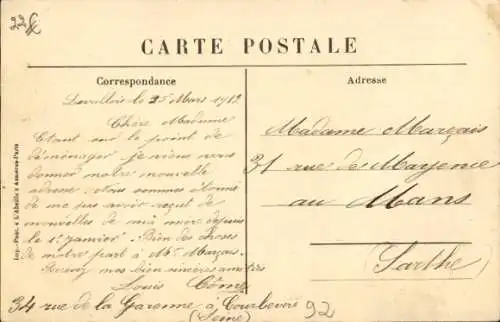 CARTE POSTALE
Correspondance
Levallois le 25 Mars 1912
Chère Madame
Etant sur le point de
déménager je viens vous
donner notre nouvelle
adresse. Nous sommes étonné
de ne pas avoir reçut de
nouvelles de ma mère depuis
le 1er janvier. Bien des choses
de notre part à Mr Marçais.
Recevez nos bien sincères amitiés
Louis Côme
34 rue de la Garenne à Courbevoie
(Seine)
92
Adresse
Madame Marçais
31 rue de Mayenne
au Mans
(Sarthe)
Imp.-Phot. "A l'Abeille", Asnières-Paris